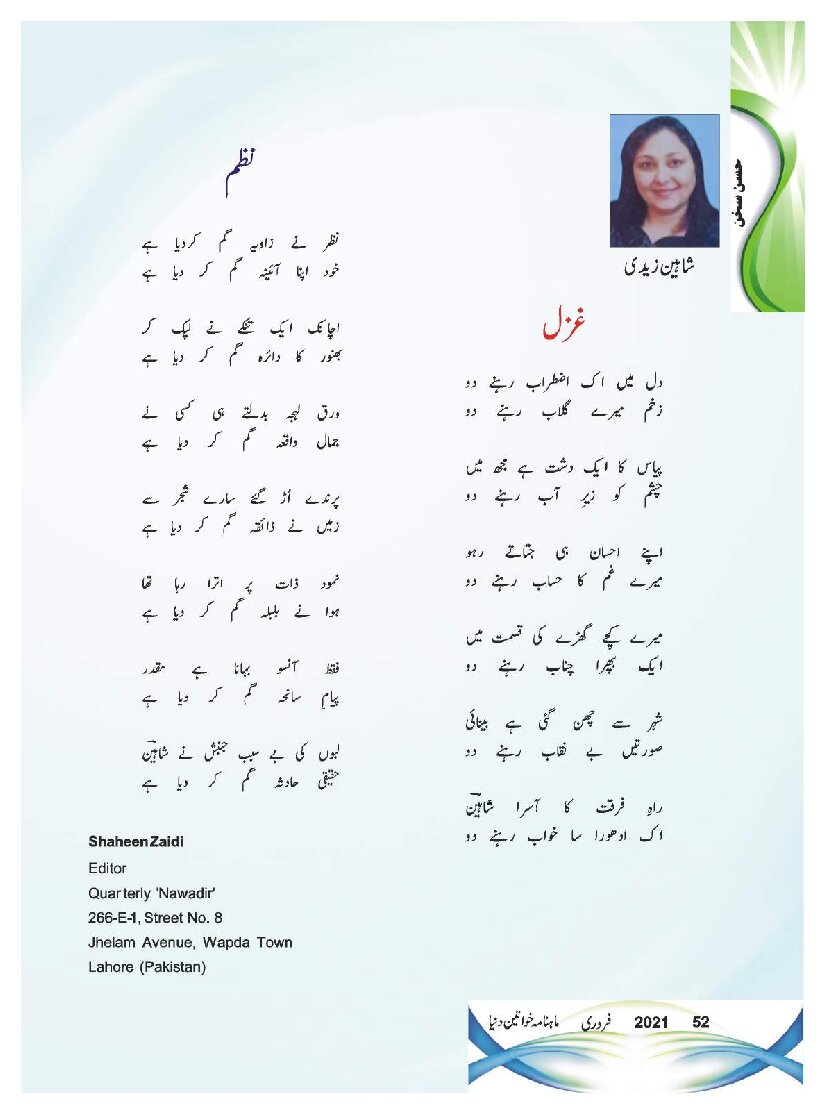 حسن سخن
شاہین زیدی
غزل
دل میں اک اضطراب رہنے دو
زخم میرے گلاب رہنے دو
پیاس کا ایک دشت ہے مجھ میں
چشم کو زیرِ آب رہنے دو
اپنے احسان ہی جتاتے رہو
میرے غم کا حساب رہنے دو
میرے کچے گھڑے کی قسمت میں
ایک بپھرا چناب رہنے دو
شہر سے چھن گئی ہے بینائی
صورتیں بے نقاب رہنے دو
راہِ فرقت کا آسرا شاہینؔ
اک ادھورا سا خواب رہنے دو
نظم
نظر نے زاویہ گم کردیا ہے
خود اپنا آئینہ گم کر دیا ہے
اچانک ایک تنکے نے لپک کر
بھنور کا دائرہ گم کر دیا ہے
ورق لہجہ بدلتے ہی کسی نے
جمال واقعہ گم کر دیا ہے
پرندے اُڑ گئے سارے شجر سے
زمیں نے ذائقہ گم کر دیا ہے
نمود ذات پر اترا رہا تھا
ہوا نے بلبلہ گم کر دیا ہے
فقط آنسو بہانا ہے مقدر
پیامِ سانحہ گم کر دیا ہے
لبوں کی بے سبب جنبش نے شاہینؔ
حقیقی حادثہ گم کر دیا ہے
Shaheen Zaidi
Editor
Quarterly 'Nawadir'
266-E-1, Street No. 8
Jhelam Avenue, Wapda Town
Lahore (Pakistan)
ماہنامہ خواتین دنیا فروری 2021 52